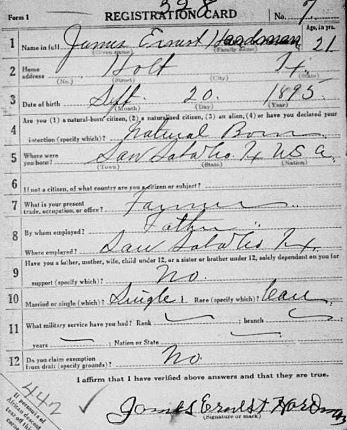 Form 1 328 REGISTRATION CARD No. 7
1 Name in full James Ernest Hardman Age, in yrs. 21
(Given name) (Family name)
2 Home address Holt Tx.
(No.) (Street) (City) (State)
3 Date of birth Sept. 20 1895
(Month) (Day) (Year)
4 Are you (1) a natural-born citizen, (2) a naturalized citizen, (3) an alien, (4) or have you declared your
intention (specify which)? Natural Born
5 Where were you born? San Saba Co. Tx U S A
(Town) (State) (Nation)
6 If not a citizen, of what country are you a citizen or subject?
7 What is your present trade, occupation, or office? Farmer
8 By whom employed? Father
Where employed? San Saba Co Tx.
9 Have you a father, mother, wife, child under 12, or a sister or brother under 12, solely dependent on you for
support (specify which)? No.
10 Married or single (which)? Single Race (specify which)? Cau
11 What military service have you had? Rank ; branch
years ; Nation or State
12 Do you claim exemption from draft (specify grounds)? No.
I affirm that I have verified above answers and that they are true.
442 ✓
If person is of African descent, tear off this corner
James Ernest Hardman
(Signature or mark)